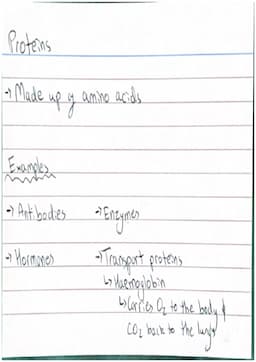 Proteins
→ Made up of amino acids
Examples
→ Antibodies → Enzymes
→ Hormones → Transport proteins
↳ Haemoglobin
↳ Carries O₂ to the body &
CO₂ back to the lungs